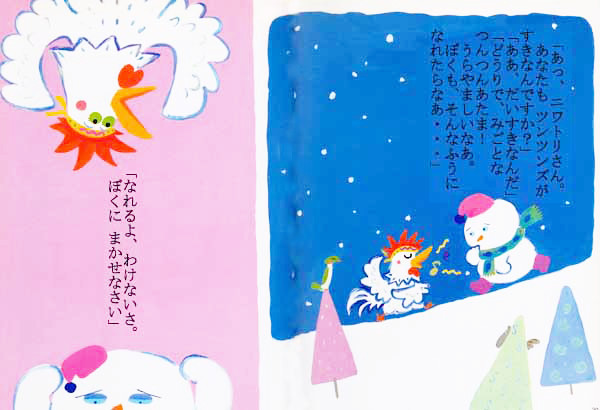 「あっ、ニワトリさん。
あなたも ツンツンズが
すきなんですか?」
「ああ、だいすきなんだ」
「どうりで、みごとな
つんつんあたま!
うらやましいなあ。
ぼくも、そんなふうに
なれたらなあ・・・」
「なれるよ、わけないさ。
ぼくに まかせなさい」